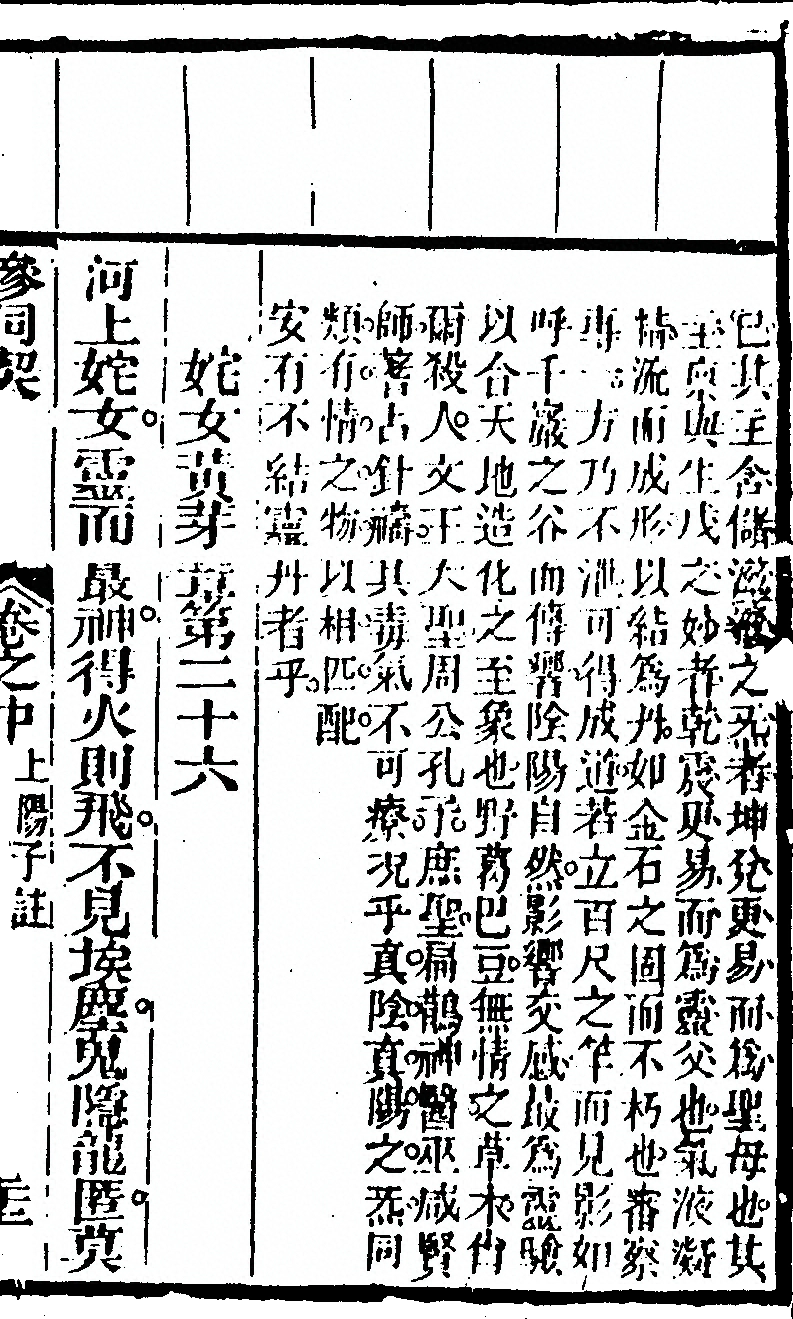 已其主含儲滋液之炁者坤兌更易而為聖母也其
主稟與生戊之妙者乾震更易而為靈父也氣液凝
情流而成形以結為丹如金石之固而不朽也審察
專一方乃不泄可得成道若立百尺之竿而見影如
呼千巖之谷而傳響陰陽自然影響交感最為靈驗
以合天地造化之至象也野葛巴豆無情之草木尚
爾殺人文王大聖周公孔子庶聖扁鵲神醫巫咸賢
師蓍占針禱其毒氣不可療况乎真陰真陽之炁同
類有情之物以相匹配
安有不結靈丹者乎
姹女黃芽章第二十六
河上姹女靈而最神得火則飛不見埃塵鬼隱龍匿莫
參同契 卷之中 上陽子註